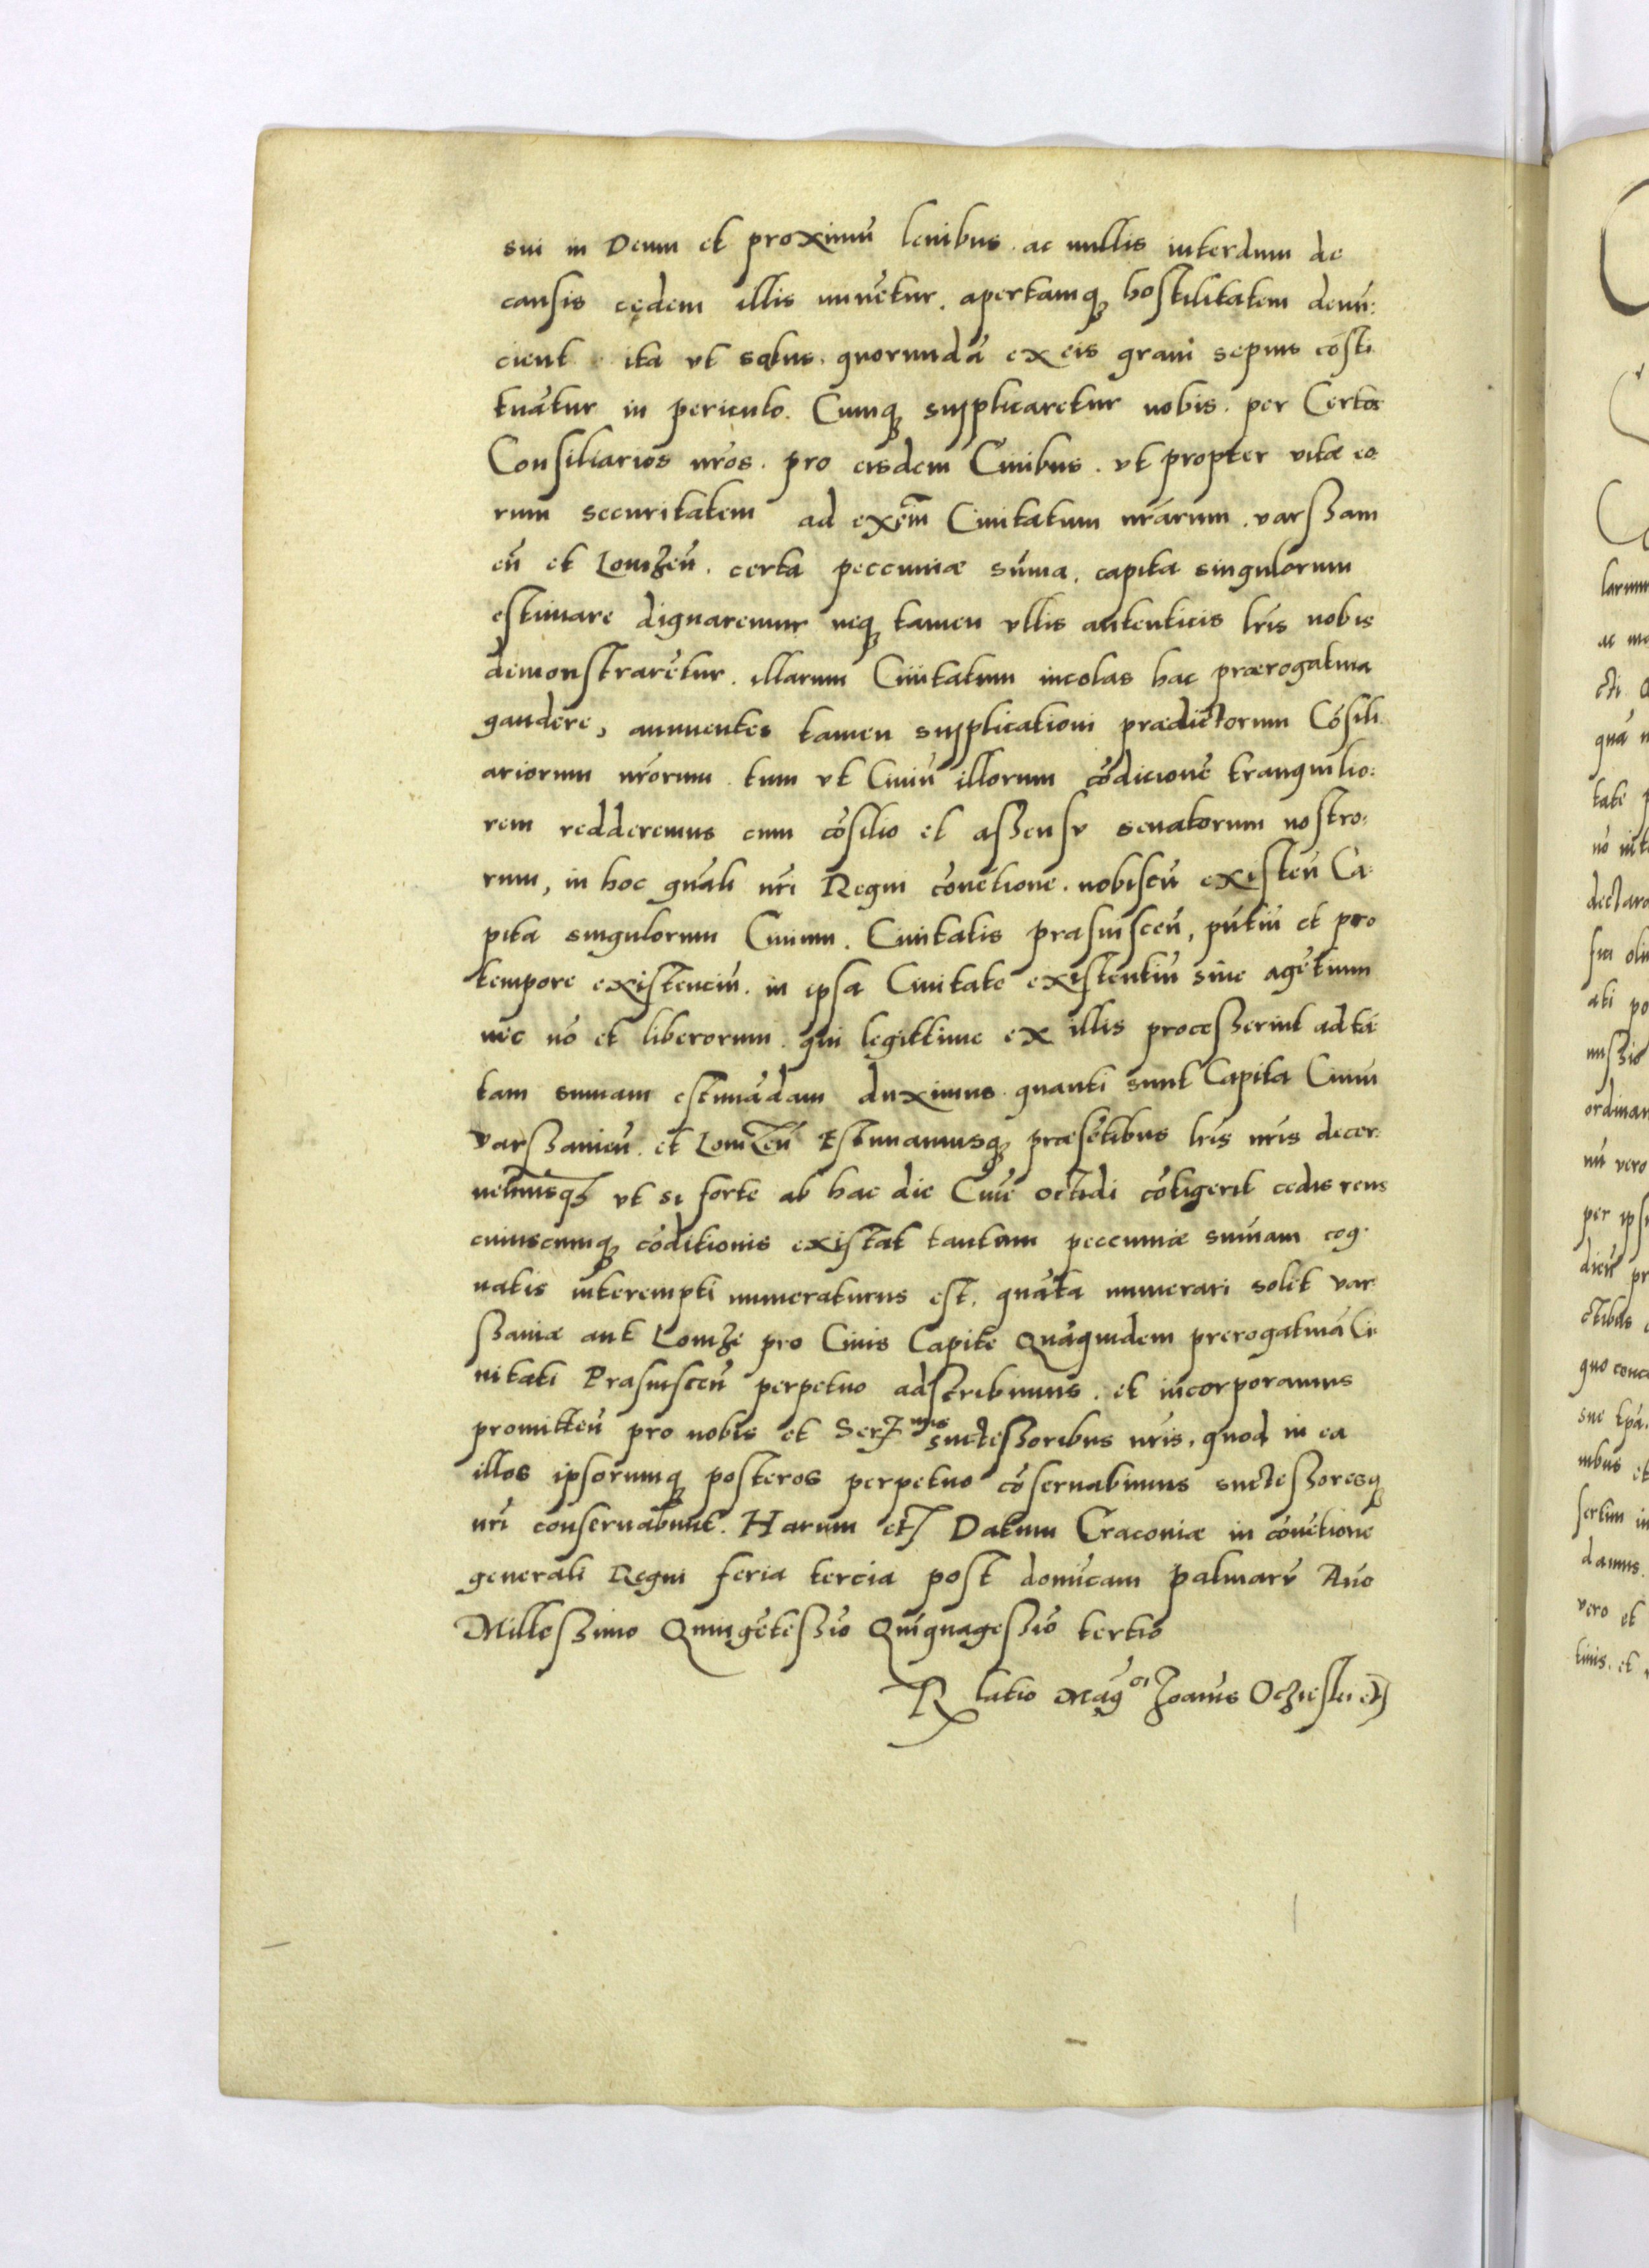 sui in Deum et proximū leuibus . ac nullis interdum de
causis cędem illis minētur . apertamq hostilitatem denū:
cient ita vt salus . quorundā ex eis graui sepius cōsti
tuātur in periculo . Cumq supplicaretur nobis . per Certos
Consiliarios nr̄os . pro eisdem Ciuibus . vt propter vitæ eo
rum securitatem ad exēm Ciuitatum nr̄arum . varssam
eń et Lomzeń . certa peccuniæ sum̄a . capita singulorum
estimare dignaremur neq tamen vllis autenticis lr̄is nobis
demonstrarētur . illarum Ciuitatum incolas hac prærogatiua
gaudere, annuentes tamen supplicationi prædictorum Cōsili
ariorum nr̄orum . tum vt Ciuiū illorum cōdicionē tranquilio:
rem redderemus cum cōsilio et assensv senatorum nostro:
rum, in hoc gn̄ali nr̄i Regni cōuētione . nobiscū existeń Ca:
pita singulorum Ciuium . Ciuitatis prasnisceń, pn̄tiū et pro
tempore existenciū . in ipsa Ciuitate existentiū siue agētium
nec nō et liberorum . qui legittime ex illis processerint ad tā
tam sum̄am estimādam duximus . quanti sunt Capita Ciuiū
varssauień . et Lomzeń Estimamusq præsētibus lr̄is nr̄is decer:
nemusq vt si forte ab hac die Ciuē occidi cōtigerit cedis reus
cuiuscumq cōditionis existat tantam peccuniæ sum̄am cog:
natis interempti numeraturus est, quāta numerari solet var:
ssauiæ aut Lomzę pro Ciuis Capite Quāquidem prerogatiuā Ci
uitati Prasnisceń perpetuo adscribimus . et incorporamus
promitteń pro nobis et Ser mis successoribus nr̄is, quod in ea
illos ipsorumq posteros perpetuo cōseruabimus successoresq
nr̄i conseruabunt . Harum etc Datum Craconiæ in cōuētione
generali Regni feria tercia post domīcam palmarv Anō
Millessimo Quingētessīo Quīquagessīo tertio
R latio Mag ci Joan̄is Ocziesky etc